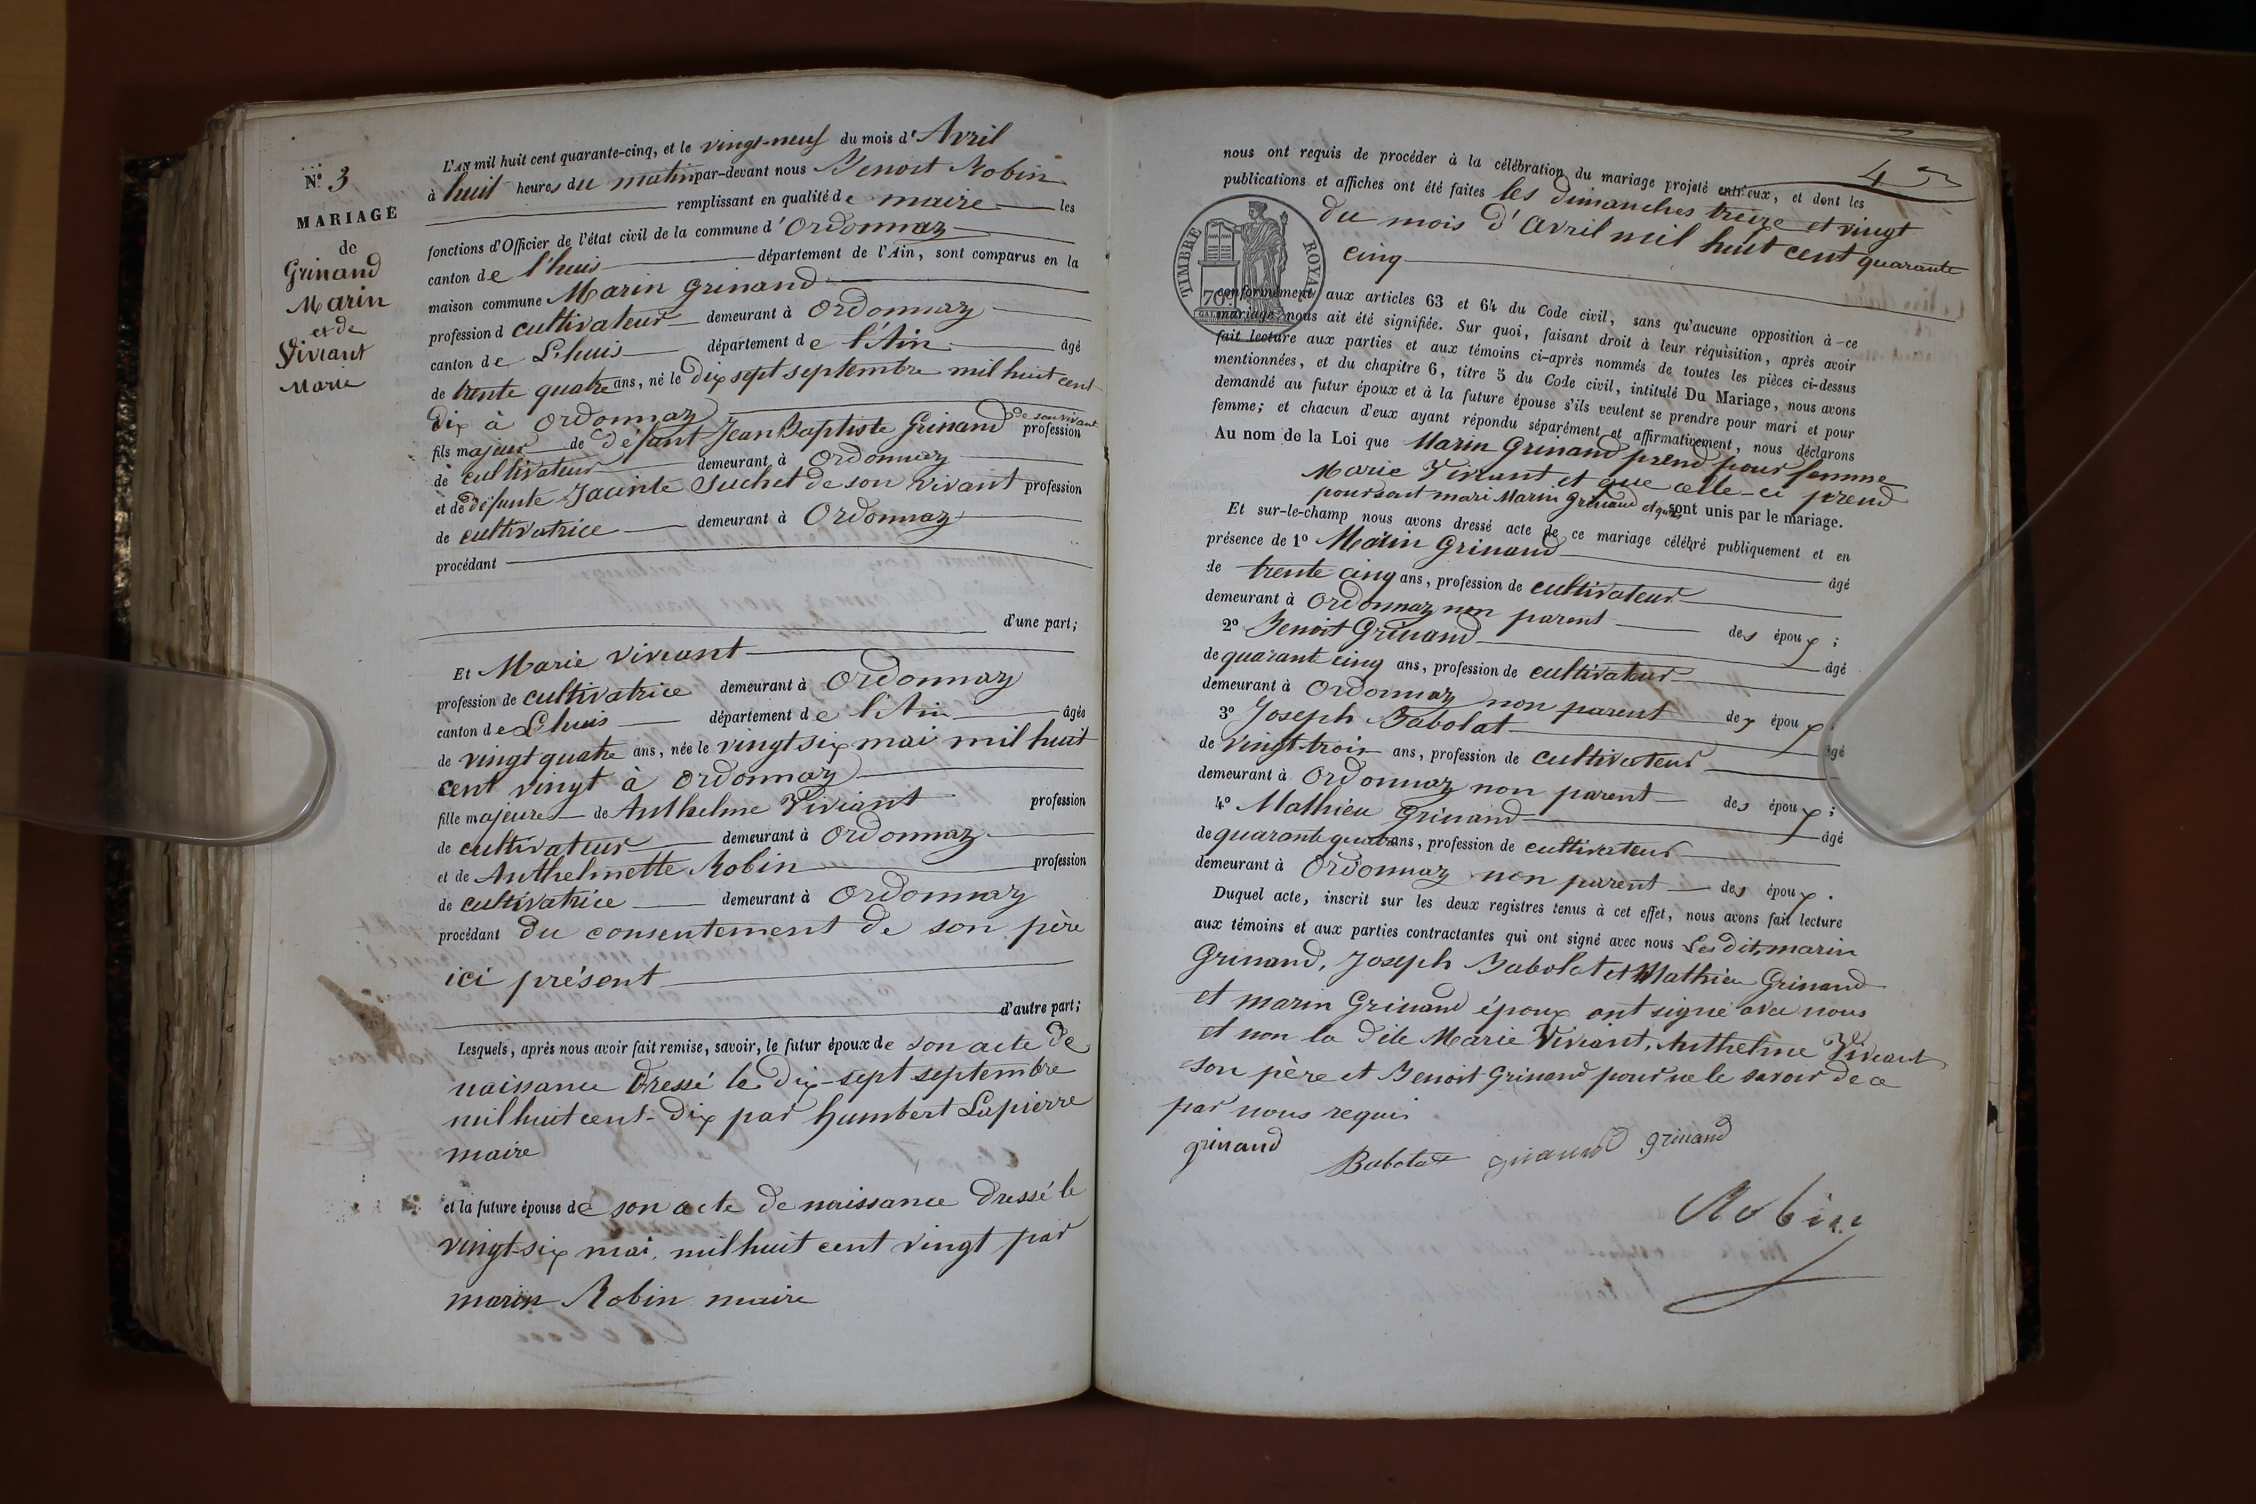 N.º 3
MARIAGE
de
Grinand
Marin
et de
Viviant
Marie
L'AN mil huit cent quarante-cinq, et le vingt-neuf du mois d'Avril
à huit heures du matin par-devant nous Benoit Robin
remplissant en qualité de maire les
fonctions d'Officier de l'état civil de la commune d'Ordonnaz
canton de l'huis département de l'Ain, sont comparus en la
maison commune Marin Grinand
profession d cultivateur demeurant à Ordonnaz
canton de Lhuis département de l'Ain âgé
de trente quatre ans, né le dix sept septembre mil huit cent
dix à Ordonnaz
fils majeur de défunt Jean Baptiste Grinand de son vivant profession
de cultivateur demeurant à Ordonnaz
et de défunte Jacinte Suchet de son vivant profession
de cultivatrice demeurant à Ordonnaz
procédant
d'une part;
Et Marie Viviant
profession de cultivatrice demeurant à Ordonnaz
canton de Lhuis département de l'Ain âgée
de vingt quatre ans, née le vingt six mai mil huit
cent vingt à Ordonnaz
fille majeure de Anthelme Viviant profession
de cultivateur demeurant à Ordonnaz
et de Anthelmette Robin profession
de cultivatrice demeurant à Ordonnaz
procédant du consentement de son père
ici présent
d'autre part;
Lesquels, après nous avoir fait remise, savoir, le futur époux de son acte de
naissance dressé le dix-sept septembre
mil huit cent-dix par humbert Lapierre
maire
et la future épouse de son acte de naissance dressé le
vingt-six mai mil huit cent vingt par
marin Robin maire
4
nous ont requis de procéder à la célébration du mariage projeté entr'eux, et dont les
publications et affiches ont été faites les dimanches treize et vingt
du mois d'avril mil huit cent quarante
cinq
TIMBRE ROYAL
70
conformément aux articles 63 et 64 du Code civil, sans qu'aucune opposition à-ce
mariage nous ait été signifiée. Sur quoi, faisant droit à leur réquisition, après avoir
fait lecture aux parties et aux témoins ci-après nommés de toutes les pièces ci-dessus
mentionnées, et du chapitre 6, titre 5 du Code civil, intitulé Du Mariage, nous avons
demandé au futur époux et à la future épouse s'ils veulent se prendre pour mari et pour
femme; et chacun d'eux ayant répondu séparément et affirmativement, nous déclarons
Au nom de la Loi que Marin Grinand prend pour femme
Marie Viviant et que celle-ci prend
pour sont mari Marin Grinand et qu'ils sont unis par le mariage.
Et sur-le-champ nous avons dressé acte de ce mariage célébré publiquement et en
présence de 1º Marin Grinand âgé
de trente cinq ans, profession de cultivateur
demeurant à Ordonnaz non parent des époux;
2º Benoit Grinand âgé
de quarant cinq ans, profession de cultivateur
demeurant à Ordonnaz non parent des époux
3º Joseph Babolat âgé
de vingt-trois ans, profession de cultivateur
demeurant à Ordonnaz non parent des époux;
4º Mathieu Grinand âgé
de quarante quatre ans, profession de cultivateur
demeurant à Ordonnaz non parent des époux.
Duquel acte, inscrit sur les deux registres tenus à cet effet, nous avons fait lecture
aux témoins et aux parties contractantes qui ont signé avec nous Les dits marin
Grinand, Joseph Babolat et Mathieu Grinand
et marin Grinand époux ont signé avec nous
et non la dite Marie Viviant, Anthelme Viviant
son père et Benoit Grinand pour ne le savoir de ce
par nous requis
grinand
Babolat grinand grinand
Robin